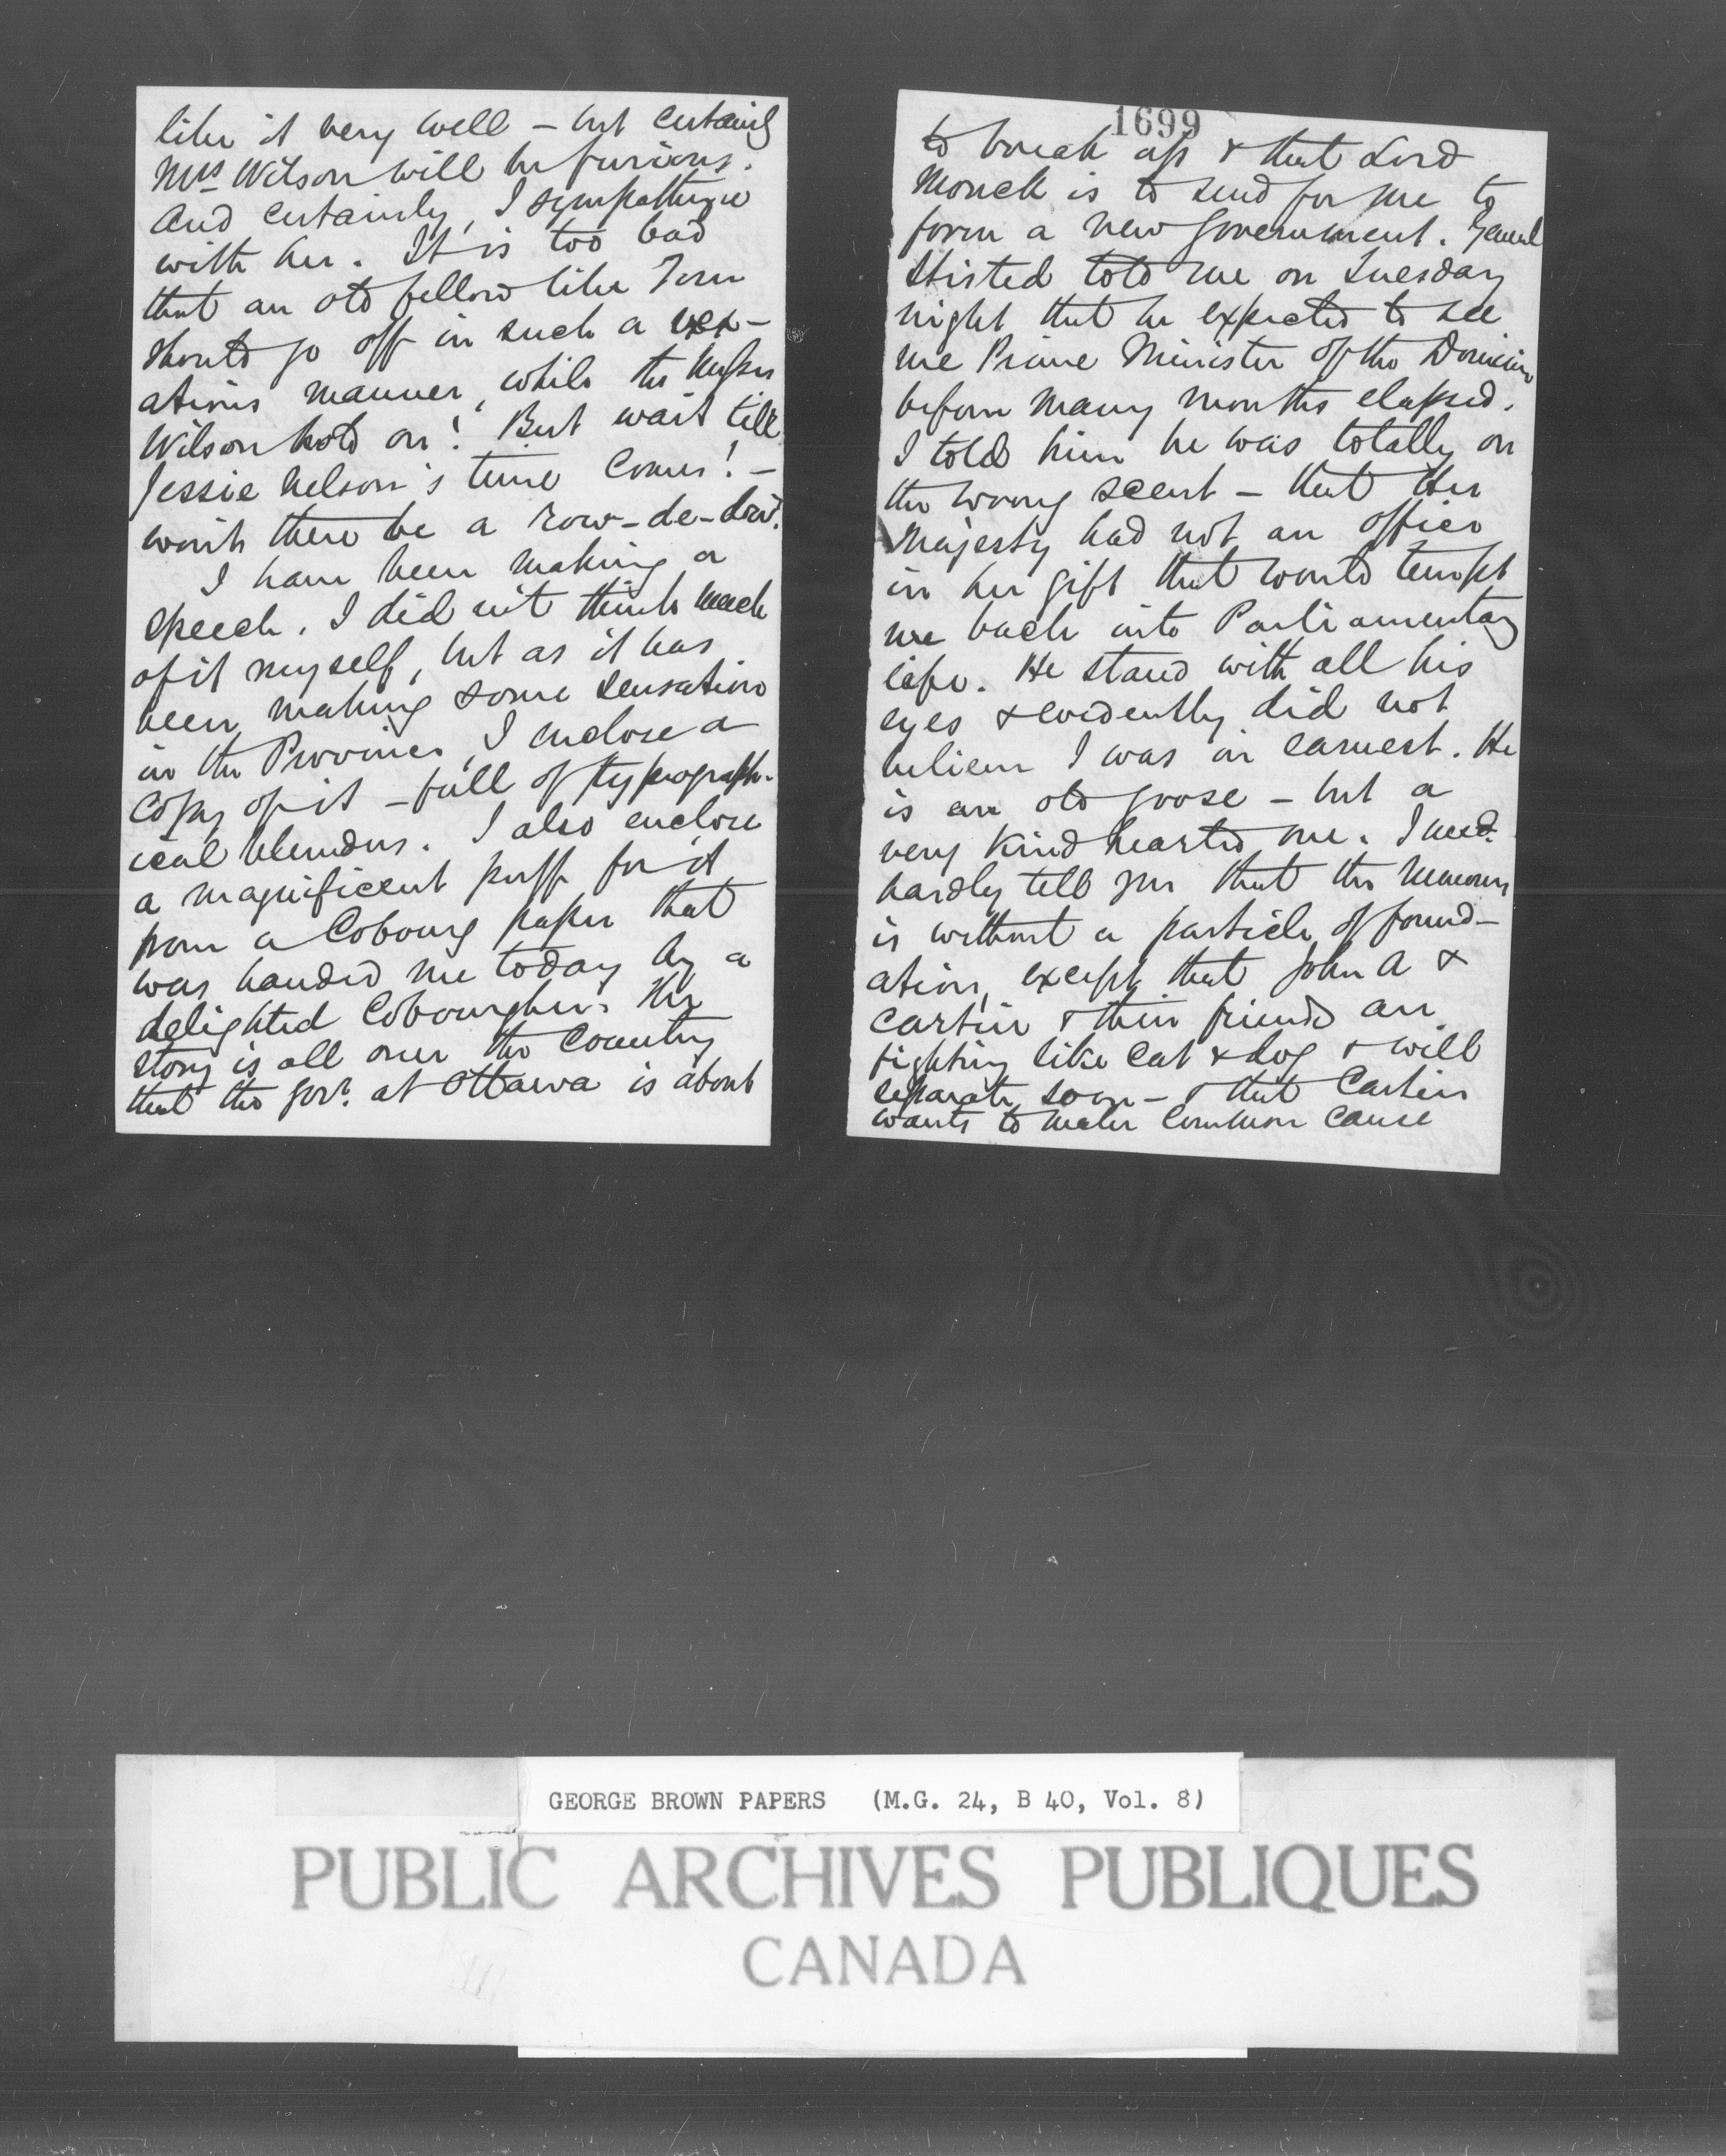 like it very well – but certainly
Mrs Wilson will be furious.
And certainly, I sympathize
with her. It is too bad
that an old fellow like Tom
should go off in such a vex-
atious manner, while the
Wilson hold on! But wait till
Jessie Nelson's time comes! –
won't there be a row-de-dow.
I have been making a
speech. I did not think much
of it myself, but as it has
been making some sensation
in the Province, I enclose a
copy of it – full of typograph-
ical blunders. I also enclose
a magnificent puff for it
from a Cobourg paper that
was handed me today by a
delighted Cobourgher. The
story is all over the Country
that the Govt. at Ottawa is about
1699
to break up & that Lord
Monck is to send for me to
form a new Government. General
Stisted told me on Tuesday
night that he expected to see
me Prime Minister of the Dominion
before many months elapsed.
I told him he was totally on
the wrong scent – that Her
Majesty had not an office
in her gift that would tempt
me back into Parliamentary
life. He stared with all his
eyes & evidently did not
believe I was in earnest. He
is an old goose – but a
very kind hearted one. I need
hardly tell you that the rumour
is without a particle of found-
ation, except that John A &
Cartier & their friends are
fighting like cat & dog & will
separate soon – & that Cartier
wants to make common cause
GEORGE BROWN PAPERS (M.G. 24, B 40, Vol. 8)
PUBLIC ARCHIVES PUBLIQUES
CANADA